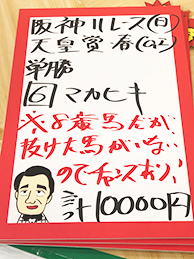 阪神11レース(日)
天皇賞春(GI)
単勝
16 マカヒキ
※8歳馬だが
抜け大馬がいない
のでチャンスあり!
計10000円